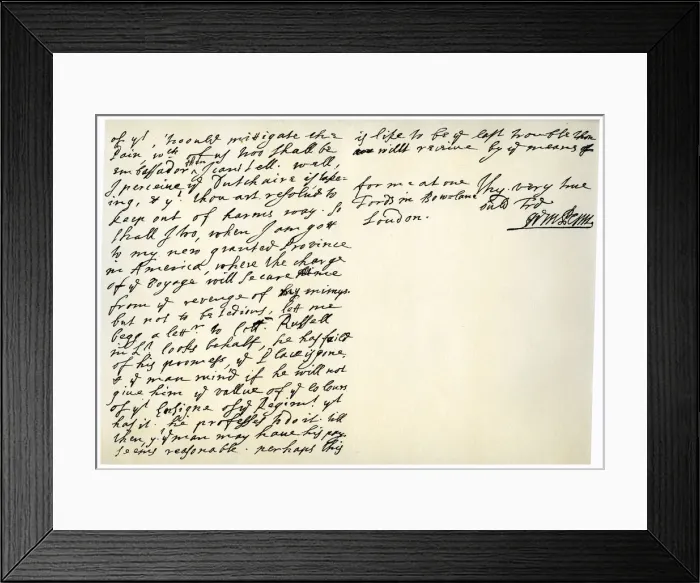 of yt, would mitigate the
Pain, wch of us two shall be
embassador, I can't tell. well,
I perceive ye Dutch aire is
ing, & yt thou art resolud to
keep out of harms way. So
shall I too, when I am gott
to my new granted Province
in America, where the charge
of ye Voyage will secure
from ye revenge of my
but not to be tedious, lett me
begg a lettr to Russell
in looks behalf, he has faild
of his promess, ye place is gone,
& ye man mind if he will not
give him ye vallue of ye colours
of yt Ensigne of ye Regimt yt
has it, he professes to do it till
then, yt ye man may have his pay.
seems reasonable. perhaps this
is like to be ye last trouble thou
willt receive by ye means of
Thy very true
for me at one
Fords in Bowelane
London.
Wm Penn